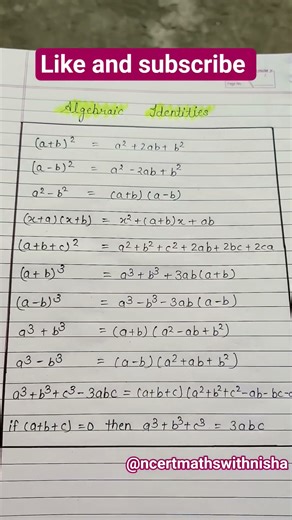 Like and subscribe
Algebraic Identities
(a+b)² = a² + 2ab + b²
(a-b)² = a² - 2ab + b²
a² - b² = (a+b) (a-b)
(x+a) (x+b) = x² + (a+b)x + ab
(a+b+c)² = a² + b² + c² + 2ab + 2bc + 2ca
(a+b)³ = a³ + b³ + 3ab(a+b)
(a-b)³ = a³ - b³ - 3ab (a-b)
a³ + b³ = (a+b) (a² - ab + b²)
a³ - b³ = (a-b) (a² + ab + b²)
a³ + b³ + c³ - 3abc = (a+b+c) (a² + b² + c² - ab - bc -
if (a+b+c) = 0 then a³ + b³ + c³ = 3abc
@ncertmathswithnisha